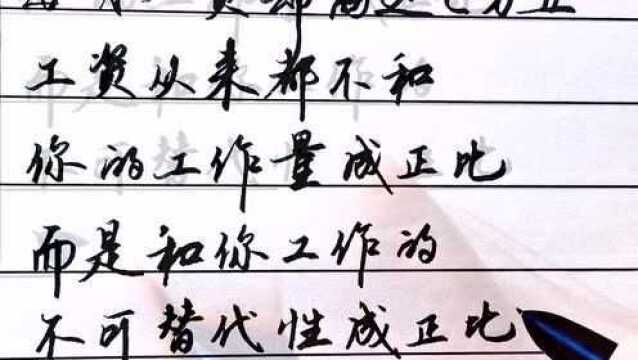 工资从来都不和
你的工作量成正比
而是和你工作的
不可替代性成正比